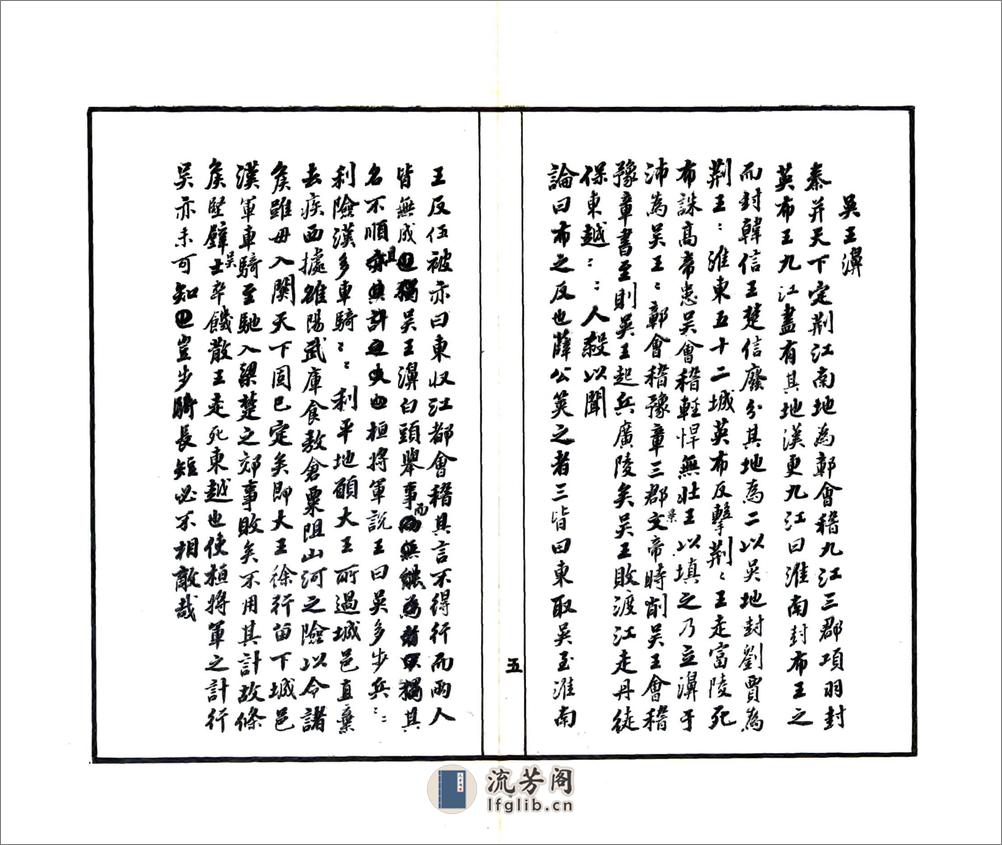 吳王濞
秦并天下定荆江南地為鄣會稽九江三郡項羽封
英布王九江盡有其地漢更九江曰淮南封布王之
而封韓信王楚信廢分其地為二以吳地封劉賈為
荆王：淮東五十二城英布反擊荆：王走富陵死
布誅高帝患吳會稽輕悍無壯王以填之乃立濞于
沛為吳王：鄣會稽豫章三郡文景帝時削吳王會稽
豫章書至則吳王起兵廣陵矣吳王敗渡江走丹徒
保東越：：人殺以聞
論曰布之反也薛公筴之者三皆曰東取吳至淮南
五
王反伍被亦曰東収江都會稽其言不得行而兩人
皆無成吳王濞白頭舉事而獨其
名不順且桓將軍説王曰吳多步兵：：
利險漢多車騎：：利平地願大王所過城邑直棄
去疾西據雒陽武庫食敖倉粟阻山河之險以令諸
矦雖毋入関天下固已定矣即大王徐行畱下城邑
漢軍車騎至馳入梁楚之郊事敗矣不用其計故條
矦堅壁吳士卒饑散王走死東越也使桓將軍之計行
吳亦未可知也豈步騎長短必不相敵哉
流芳阁
lfglib.cn